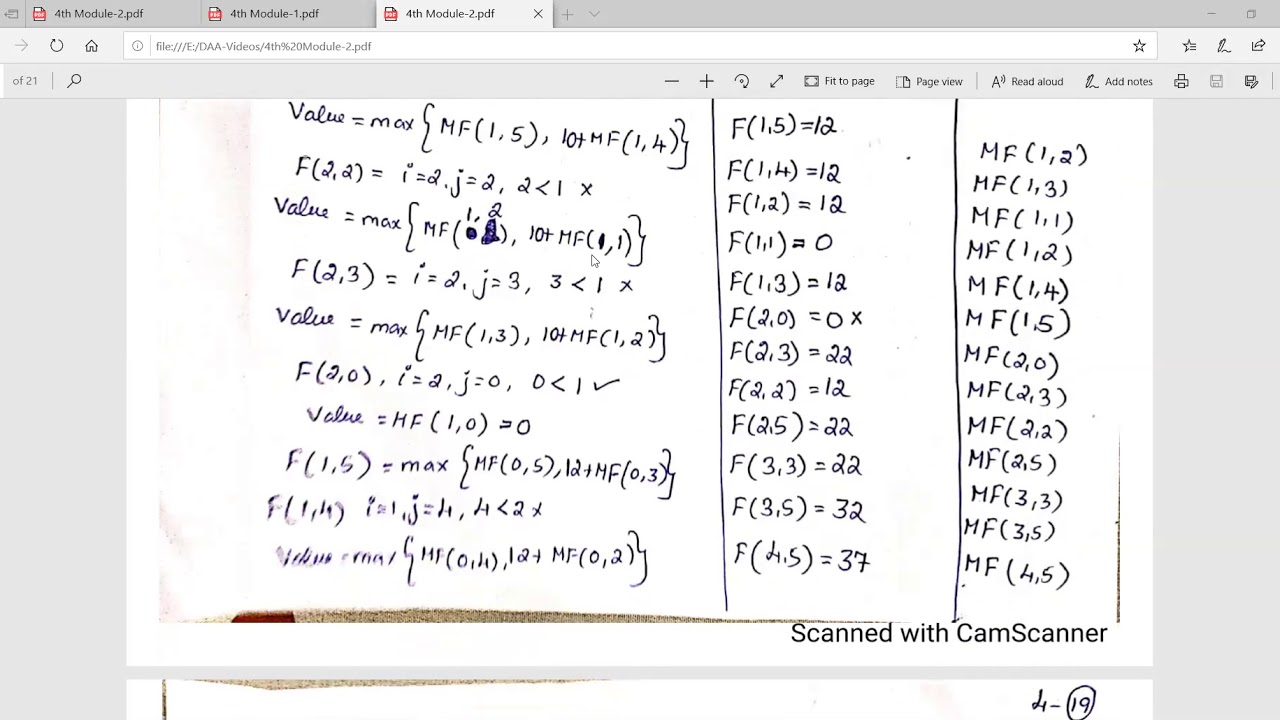 4th Module-2.pdf
4th Module-1.pdf
4th Module-2.pdf
file:///E:/DAA-Videos/4th%20Module-2.pdf
of 21
Fit to page
Page view
Read aloud
Add notes
Value = max {MF(1,5), 10+MF(1,4)}
F(2,2) = i=2, j=2, 2<1 x
Value = max {MF(1,2), 10+MF(1,1)}
F(2,3) = i=2, j=3, 3<1 x
Value = max {MF(1,3), 10+MF(1,2)}
F(2,0), i=2, j=0, 0<1 ✓
Value = MF(1,0) = 0
F(1,5) = max {MF(0,5), 12+MF(0,3)}
F(1,4) i=1, j=4, 4<2 x
Value = max {MF(0,4), 12+ MF(0,2)}
F(1,5) = 12
F(1,4) = 12
F(1,2) = 12
F(1,1) = 0
F(1,3) = 12
F(2,0) = 0 x
F(2,3) = 22
F(2,2) = 12
F(2,5) = 22
F(3,3) = 22
F(3,5) = 32
F(4,5) = 37
MF(1,2)
MF(1,3)
MF(1,1)
MF(1,2)
MF(1,4)
MF(1,5)
MF(2,0)
MF(2,3)
MF(2,2)
MF(2,5)
MF(3,3)
MF(3,5)
MF(4,5)
Scanned with CamScanner
4-19